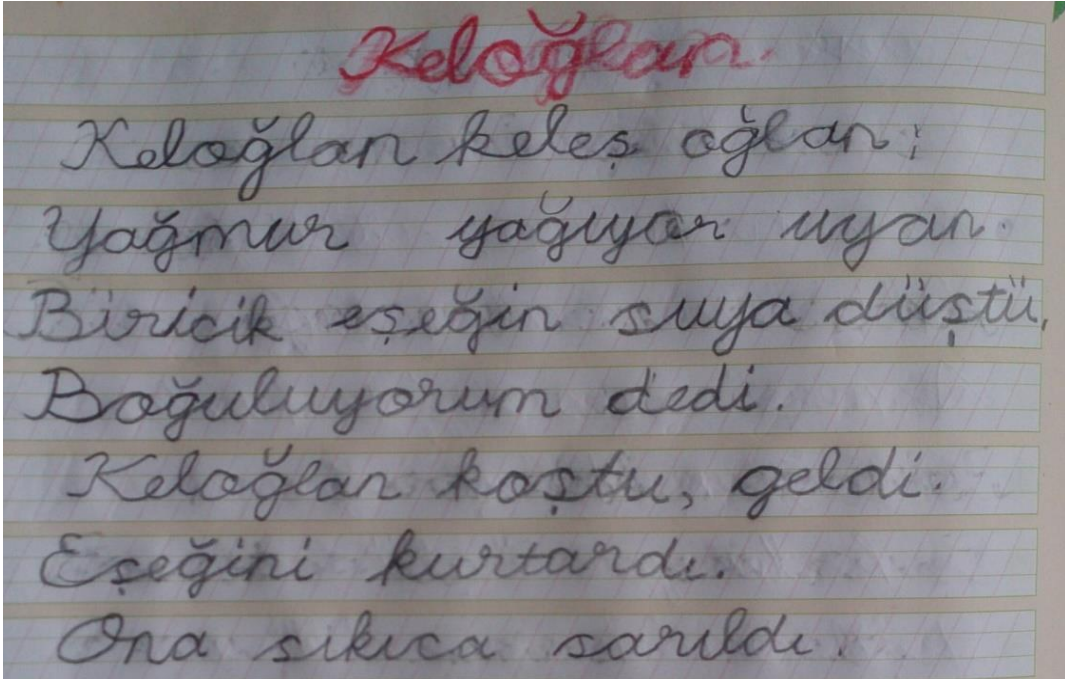 Keloğlan.
Keloğlan keleş oğlan;
Yağmur yağıyor uyan.
Biricik eşeğin suya düştü,
Boğuluyorum dedi.
Keloğlan koştu, geldi.
Eşeğini kurtardı.
Ona sıkıca sarıldı.